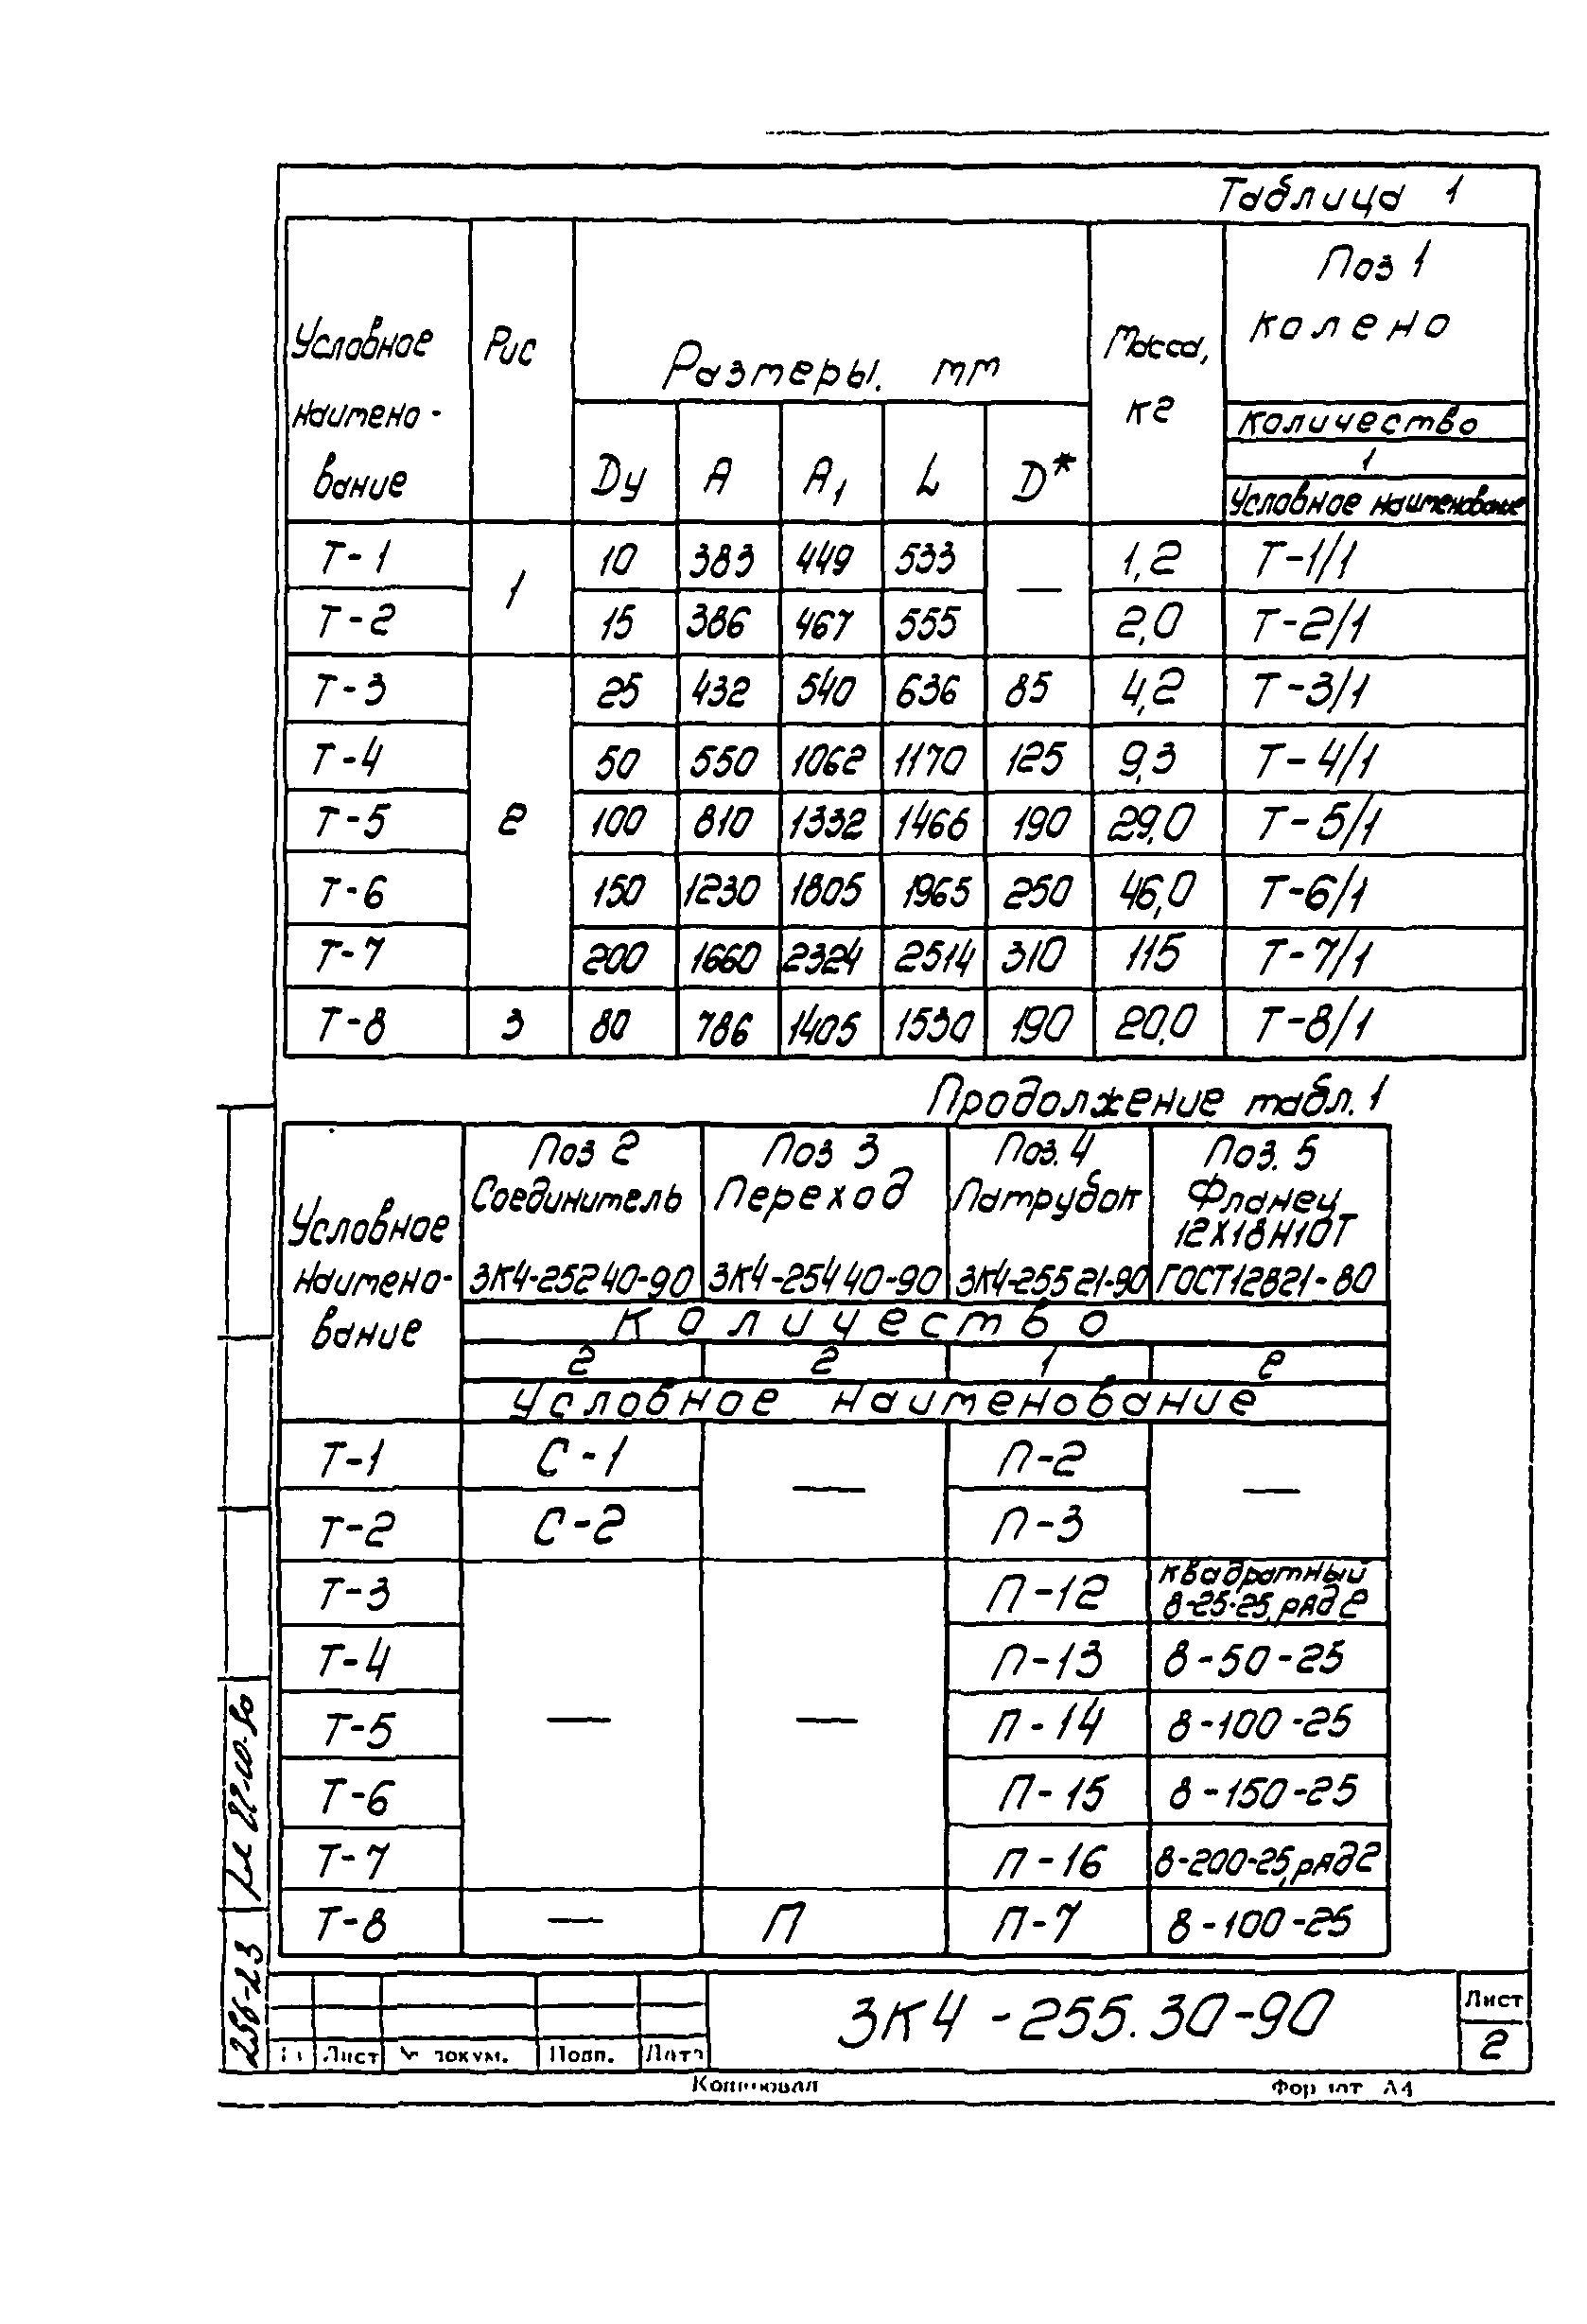 Таблица 1
Условное наимено-вание | Рис | Размеры. мм | Масса, кг | Поз 1 колено
количество
Dу | A | A1 | L | D* | 1
Условное наименование
Т-1 | 1 | 10 | 383 | 449 | 533 | — | 1,2 | Т-1/1
Т-2 | 15 | 386 | 467 | 555 | 2,0 | Т-2/1
Т-3 | 2 | 25 | 432 | 540 | 636 | 85 | 4,2 | Т-3/1
Т-4 | 50 | 550 | 1062 | 1170 | 125 | 9,3 | Т-4/1
Т-5 | 100 | 810 | 1332 | 1466 | 190 | 29,0 | Т-5/1
Т-6 | 150 | 1230 | 1805 | 1965 | 250 | 46,0 | Т-6/1
Т-7 | 200 | 1660 | 2324 | 2514 | 310 | 115 | Т-7/1
Т-8 | 3 | 80 | 786 | 1405 | 1530 | 190 | 20,0 | Т-8/1
Продолжение табл. 1
Условное наимено-вание | Поз 2 Соединитель ЗК4-252 40-90 | Поз 3 Переход ЗК4-254 40-90 | Поз. 4 Патрубок ЗК4-255 21-90 | Поз. 5 Фланец 12Х18Н10Т ГОСТ12821-80
Количество
2 | 2 | 1 | 2
Условное наименование
Т-1 | С-1 | — | П-2 | —
Т-2 | С-2 | П-3
Т-3 | П-12 | квадратный 8-25-25, ряд 2
Т-4 | П-13 | 8-50-25
Т-5 | — | — | П-14 | 8-100-25
Т-6 | П-15 | 8-150-25
Т-7 | П-16 | 8-200-25, ряд 2
Т-8 | — | П | П-7 | 8-100-25
256-23
Лист | докум. | Подп. | Дата
ЗК4-255.30-90
Лист
2
Копировал
Формат А4